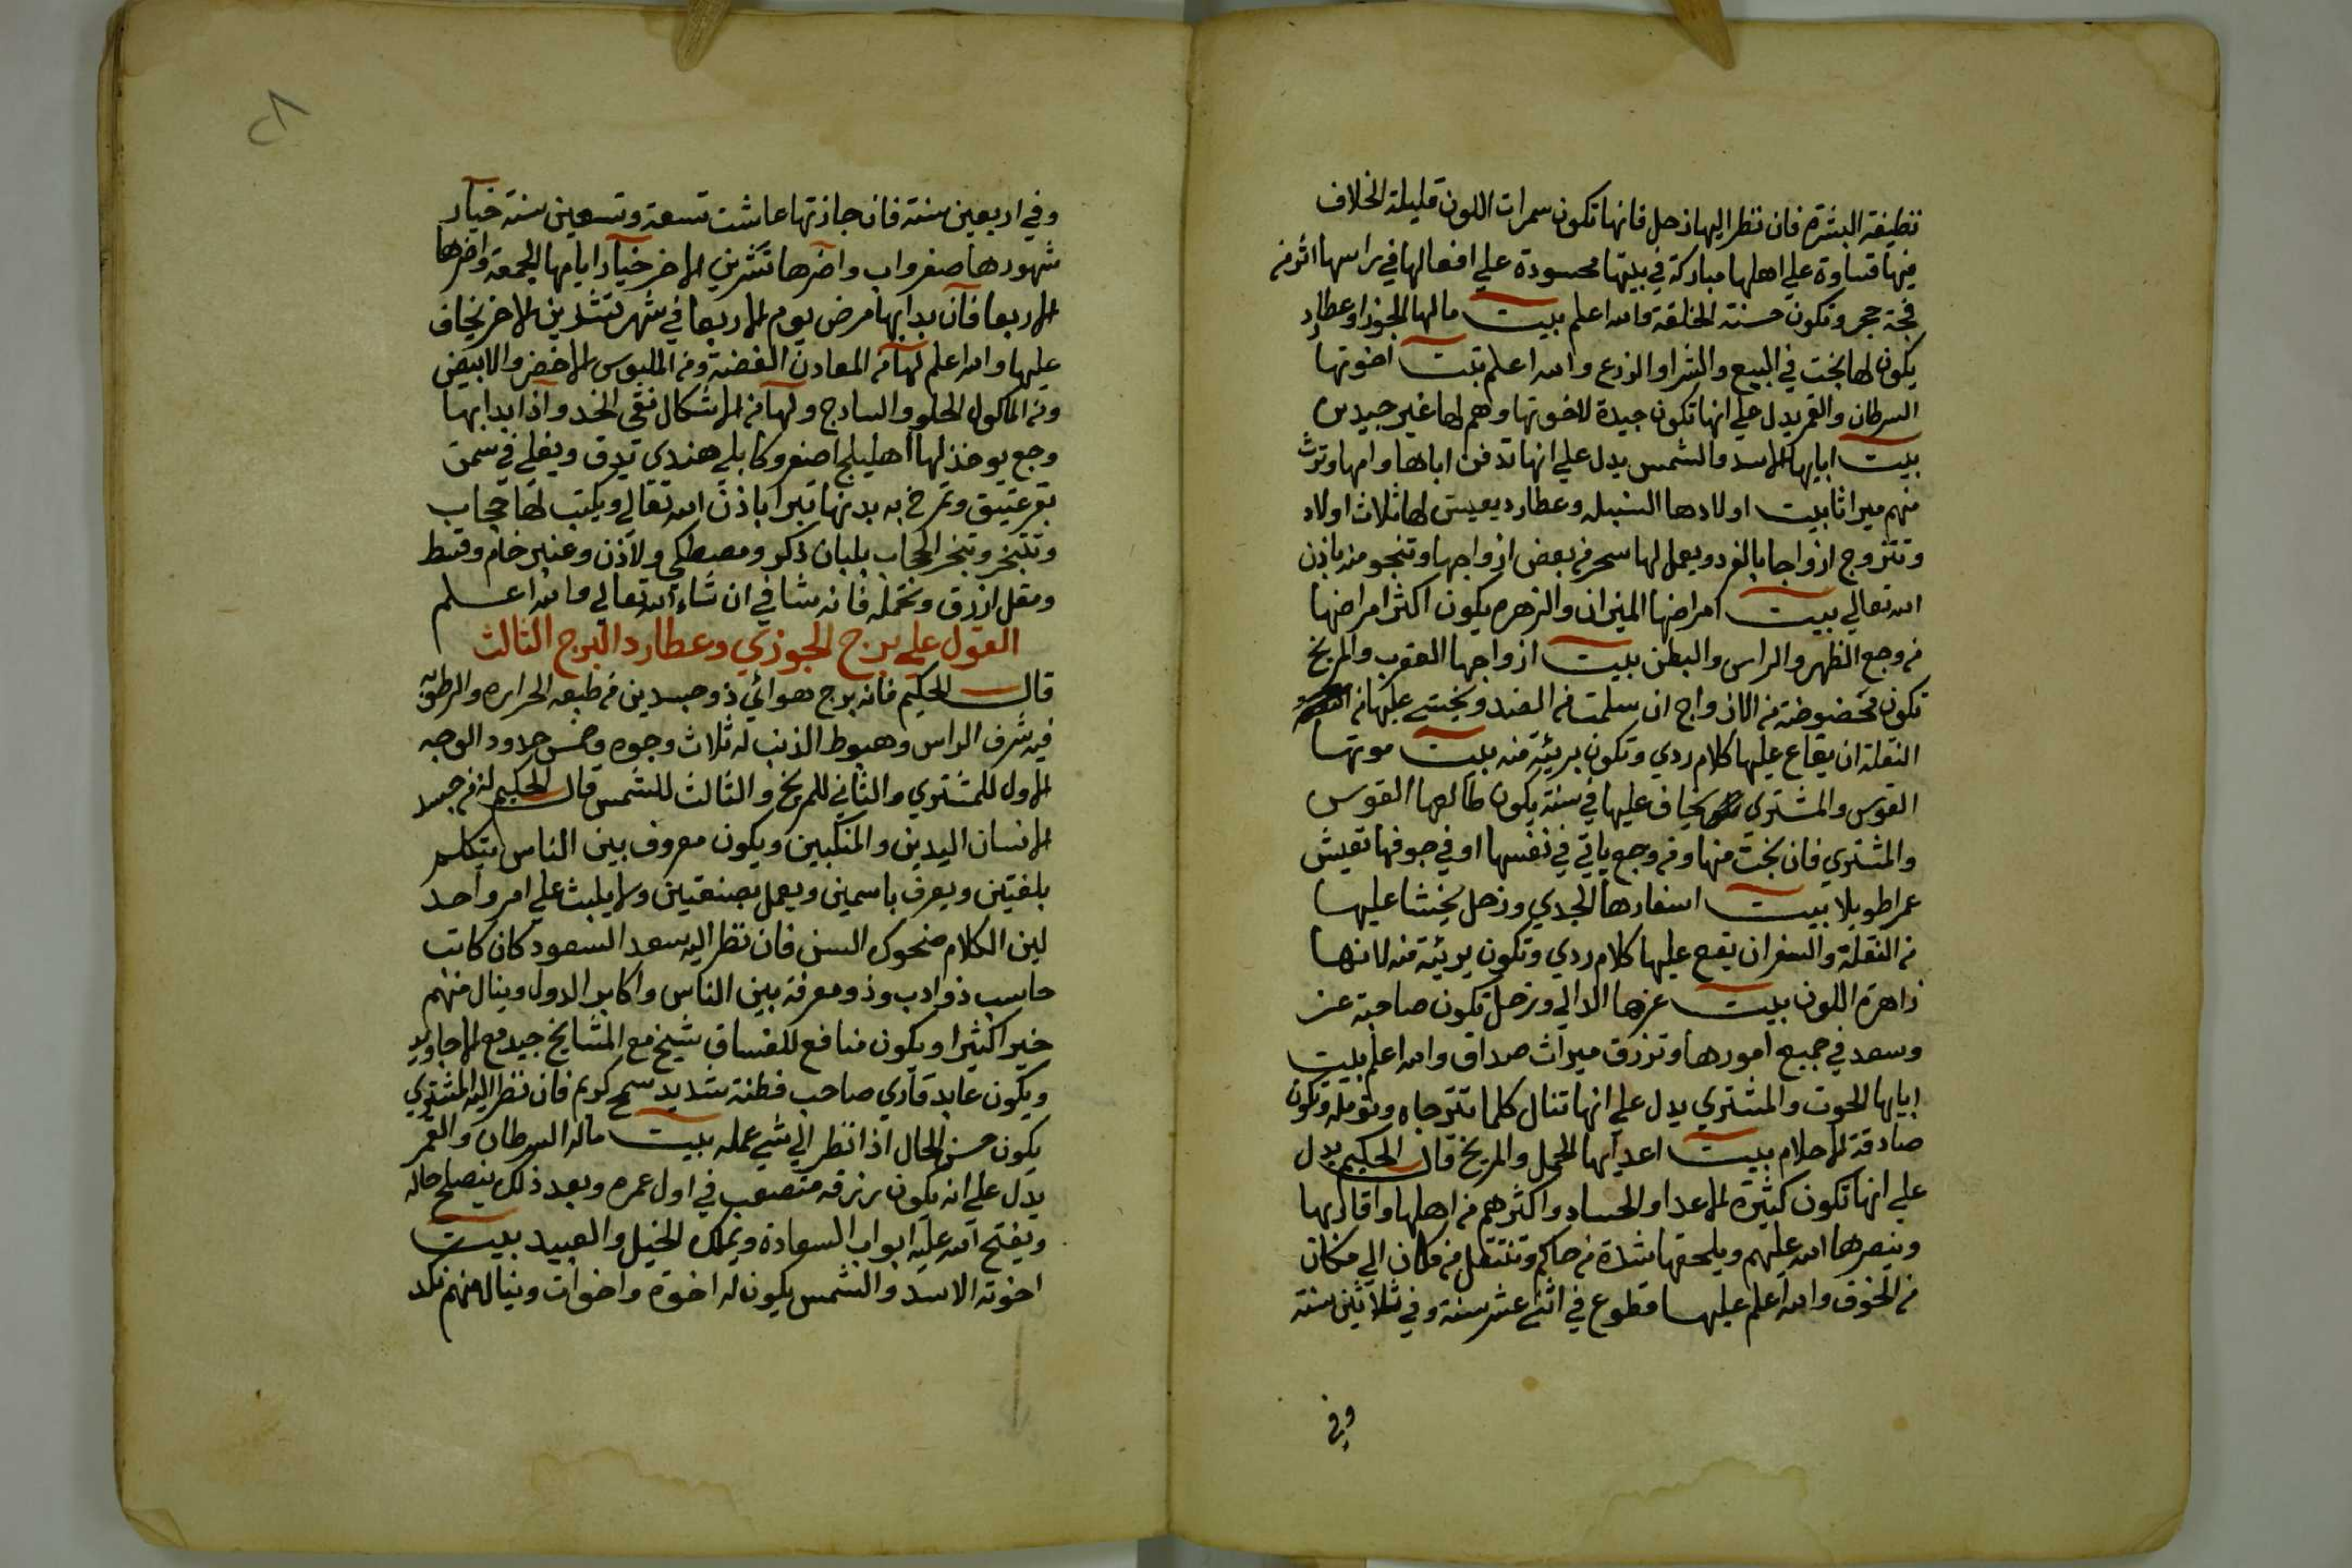 نظيفة البشرة فان نظر اليها زحل فانها تكون سمرات اللون قليلة الخلاف
فيها قساوة علي اهلها مباركة في بيتها محسودة علي افعالها في راسها اثر من
فجة حجر وتكون حسنة الخلقة والله اعلم بيت مالها الجوزا وعطارد
يكون لها بخت في البيع والشرا والزرع والله اعلم بيت اخوتها
السرطان والقمر يدل علي انها تكون جيدة لاخوتها وهم لها غير جيدين
بيت ابايها الاسد والشمس يدل علي انها تدفن اباها وامها وترث
منهم ميراثا بيت اولادها السنبله وعطارد يعيش لها ثلاث اولاد
وتتزوج ازواجا بالفرد ويعمل لها سحر من بعض ازواجها وتنجو منه باذن
الله تعالي بيت امراضها الميزان والزهره يكون اكثر امراضها
من وجع الظهر والراس والبطن بيت ازواجها العقرب والمريخ
تكون مخصوصة من الازواج ان سلمت من الضد ويخشي عليها من
النقلة ان يقاع عليها كلام ردي وتكون بريئة منه بيت موتها
القوس والمشتري يخاف عليها في سنة يكون طالعها القوس
والمشتري فان نجت منها ومن وجع ياتي في نفسها او في جوفها تعيش
عمرا طويلا بيت اسفارها الجدي وزحل يخشا عليها
من النقلة والسفر ان يقع عليها كلام ردي وتكون بريئة منه لانها
زاهرة اللون بيت عزها الدالي وزحل تكون صاحبة عز
وسعد في جميع امورها وترزق ميراث صداق والله اعلم بيت
ابايها الحوت والمشتري يدل علي انها تنال كلما تترجاه وتومله وتكون
صادقة الاحلام بيت اعدايها الحمل والمريخ قال الحكيم يدل
علي انها تكون كثيرة الاعدا والحساد واكثرهم من اهلها واقاربها
وينصرها الله عليهم ويلحقها شدة من حاكم وتنتقل من مكان الي مكان
من الخوف والله اعلم عليها قطوع في اثني عشر سنة وفي ثلاثين سنة
وفي
٢٨
وفي اربعين سنة فان جازتها عاشت تسعة وتسعين سنة خيار
شهورها صفر واب واخرها تشرين الاخر خيار ايامها الجمعة واخرها
الاربعا فان بدا بها مرض يوم الاربعا في شهر تشرين الاخر يخاف
عليها والله اعلم لها من المعادن الفضة ومن الملبوس الاخضر والابيض
ومن الماكول الحلو والسادج ولها من الاشكال نقي الخد واذا بدا بها
وجع يوخذ لها اهليلج اصفر وكابلي هندي تدق ويغلي في سمن
بقر عتيق وتمرخ به بدنها تبرا باذن الله تعالي ويكتب لها حجاب
وتتبخر وتبخر الحجاب بلبان ذكر ومصطكي ولاذن وعنبر خام وقسط
ومقل ازرق وتحمله فانه شافي ان شاء الله تعالي والله اعلم
القول علي برج الجوزي وعطارد البرج الثالث
قال الحكيم فانه برج هوائي ذو جسدين من طبعه الحراره والرطوبه
فيه شرف الراس وهبوط الذنب له ثلاث وجوه وخمس حدود الوجه
الاول للمشتري والثاني للمريخ والثالث للشمس قال الحكيم له من جسد
الانسان اليدين والمنكبين ويكون معروف بين الناس يتكلم
بلغتين ويعرف باسمين ويعمل بصنعتين ولا يلبث علي امر واحد
لين الكلام ضحوك السن فان نظر اليه سعد السعود كان كاتب
حاسب ذو ادب وذو معرفة بين الناس واكابر الدول وينال منهم
خيرا كثيرا ويكون منافع للفساق شيخ مع المشايخ جيد مع الاجاويد
ويكون عابد قاري صاحب فطنة شديد سمح كريم فان نظر اليه المشتري
يكون حسن الحال اذا نظر الي شي عمله بيت ماله السرطان والقمر
يدل علي انه يكون برزقه متصعب في اول عمره وبعد ذلك ينصلح حاله
ويفتح الله عليه ابواب السعادة ويملك الخيل والعبيد بيت
اخوته الاسد والشمس يكون له اخوة واخوات وينال منهم نكد